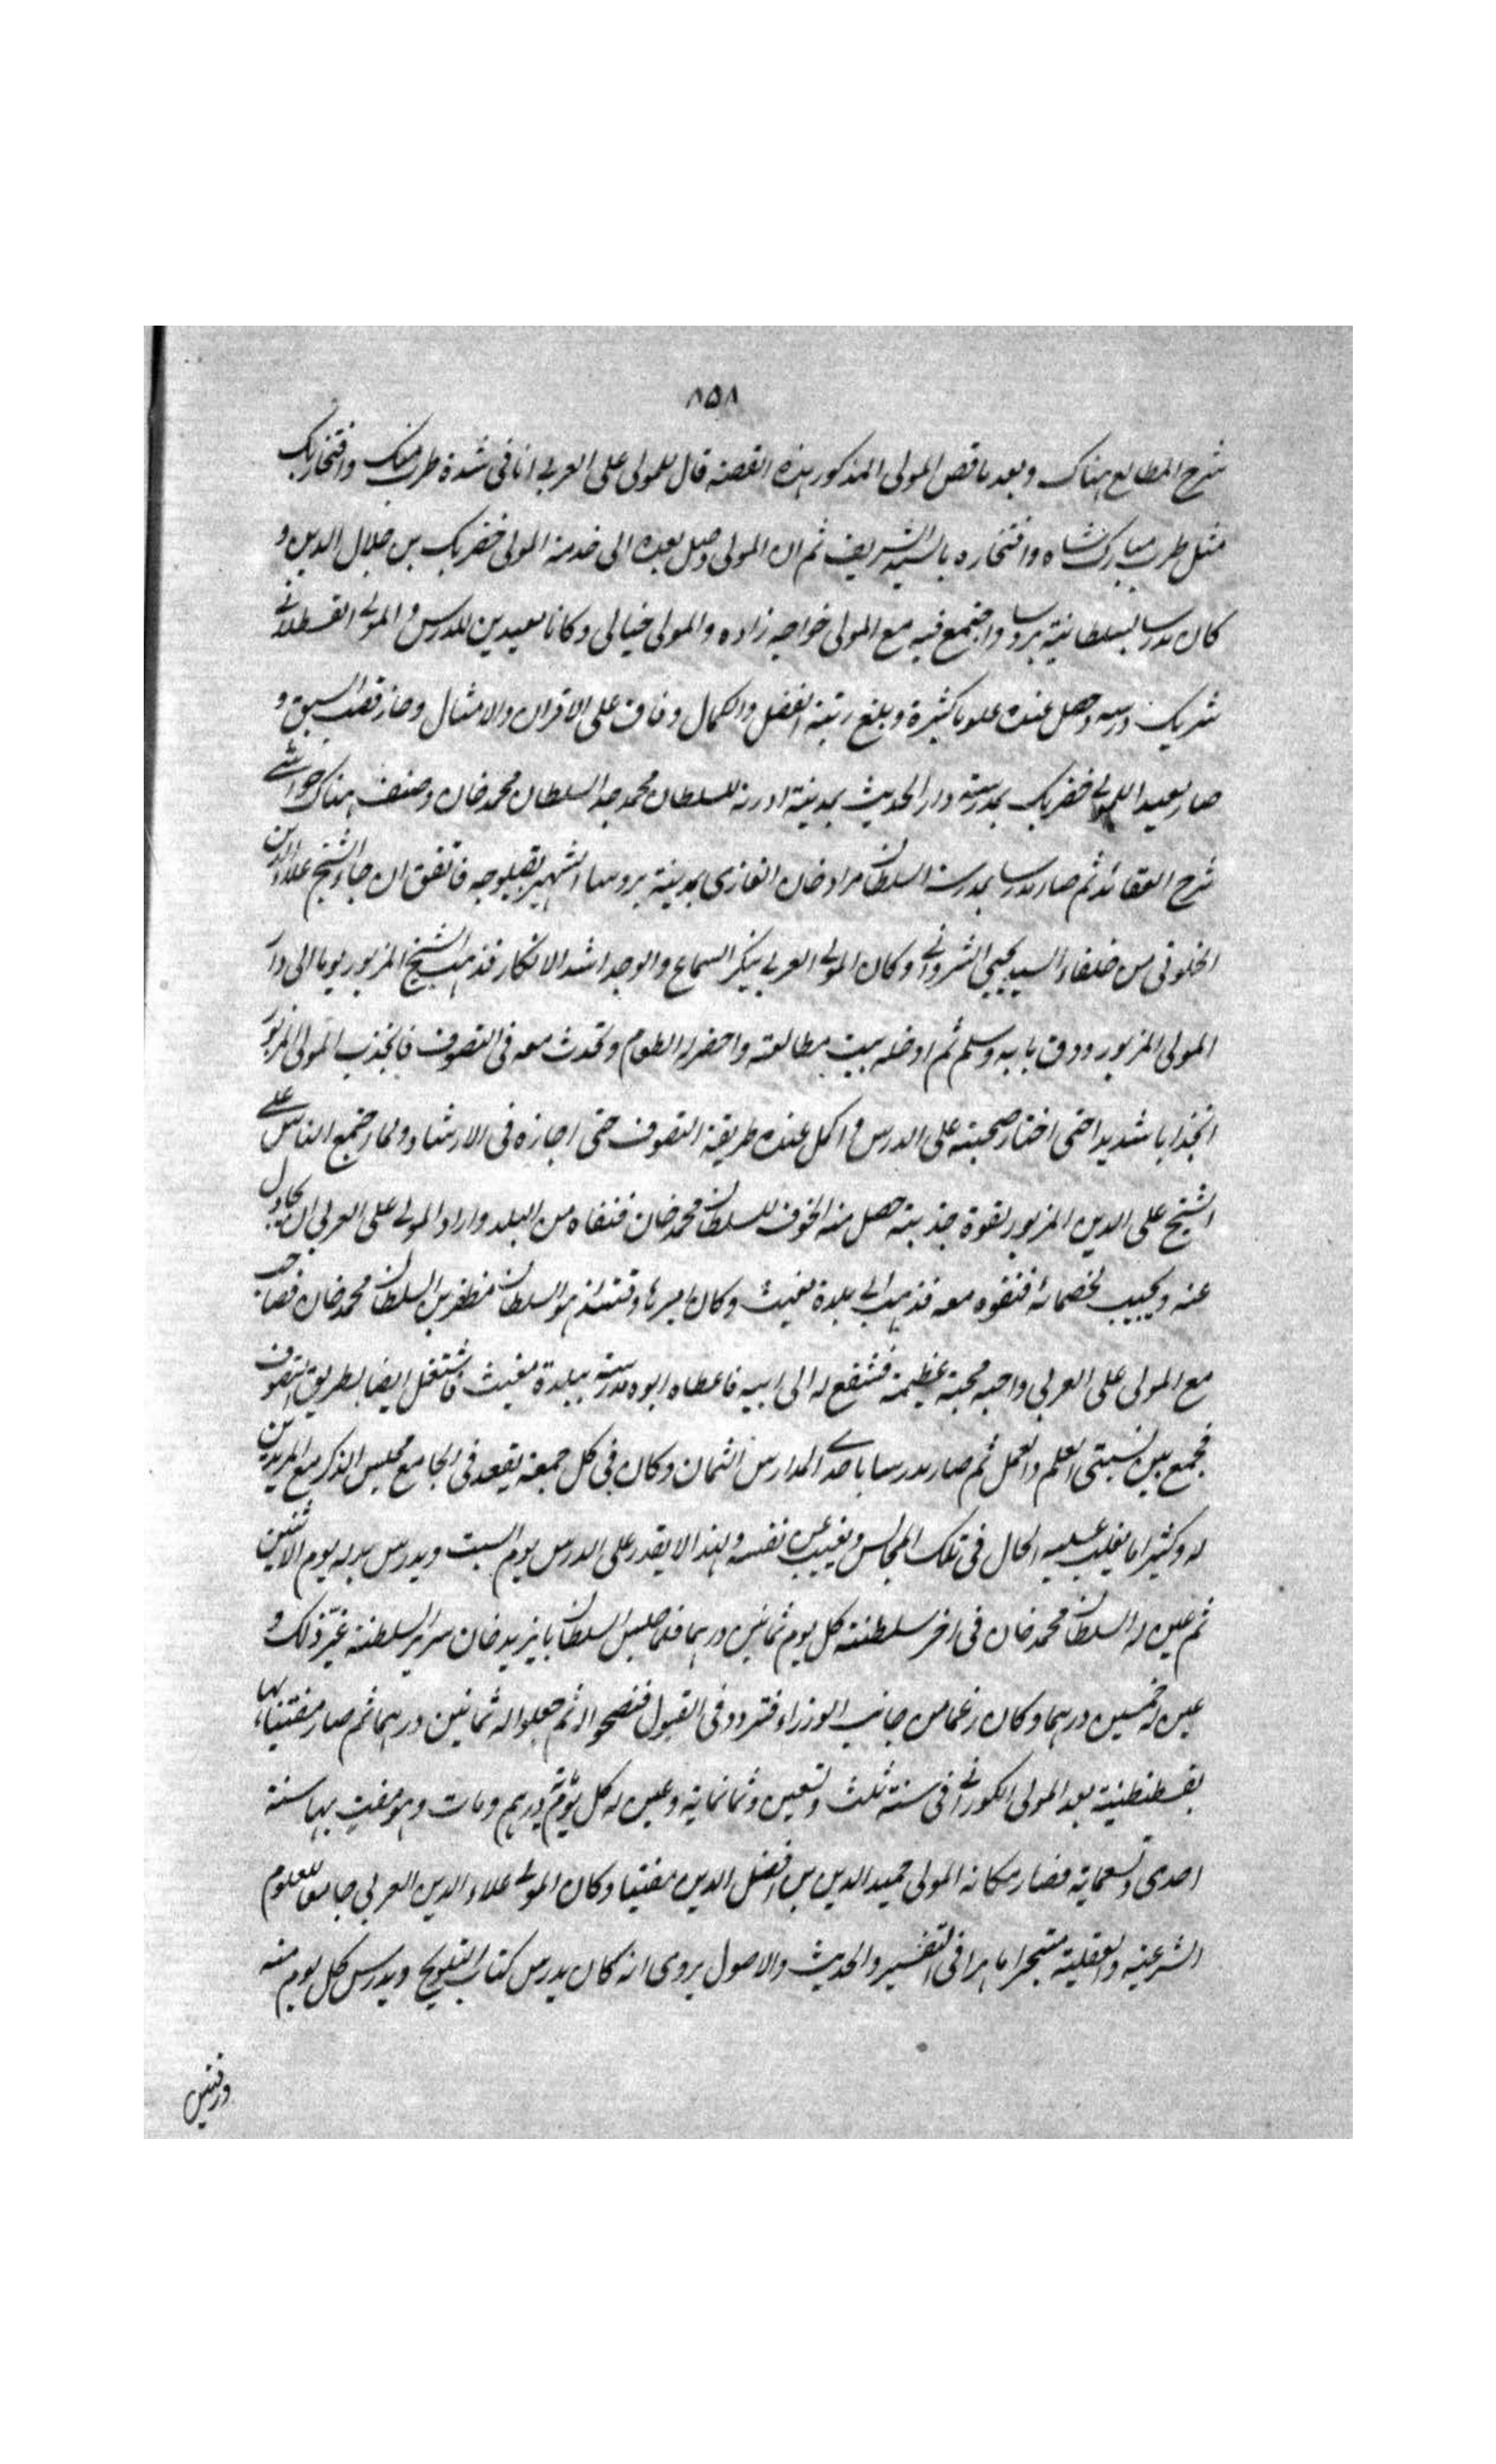 ٨٥٨
شرح المطالع هناك وبعد ما قص المولى المذكور هذه القصة قال للمولى على العربي انا في شدة طربي منك وافتخاري بك
مثل طرب مباركشاه وافتخاره بالسيد الشريف ثم ان المولى وصل بعده الى خدمة المولى خضر بك بن جلال الدين و
كان مدرسا بسلطانية بروسا واجتمع فيه مع المولى خواجه زاده والمولى خيالى وكانا معيدين للدرس والمولى القسطلانى
شريك درسه وحصل عنده علوما كثيرة وبلغ رتبة الفضل والكمال وفاق على الاقران والامثال وحاز قصب السبق و
صار معيدا للمولى خضر بك بمدرسة دار الحديث بمدينة ادرنه للسلطان محمد جد السلطان محمد خان وصنف هناك حواشى
شرح العقائد ثم صار مدرسا بمدرسة السلطان مراد خان الغازى بمدينة بروسا الشهير بقبلوجه فاتفق ان جاء الشيخ علاء الدين
الخلوتى من خلفاء السيد يحيى الشروانى وكان المولى العربى ينكر السماع والوجد اشد الانكار فذهب الشيخ المزبور يوما الى دار
المولى المزبور ودق بابه وسلم ثم ادخله بيت مطالعته واحضر له الطعام وتحدث معه فى التصوف فانجذب المولى المزبور
انجذابا شديدا حتى اختار صحبته على الدرس واكمل عنده طريقة التصوف حتى اجازه فى الارشاد ولما اجتمع الناس على
الشيخ على الدين المزبور لقوة جذبته حصل منه الخوف للسلطان محمد خان فنفاه من البلد واراد المولى على العربى ان يجادل
عنه ويجيب لخصمائه فنفوه معه فذهب الى بلدة مغيث وكان اميرها وقتئذ هو السلطان مظفر بن السلطان محمد خان فصاحب
مع المولى على العربى واحبه محبة عظيمة فشفع له الى ابيه فاعطاه ابوه مدرسة ببلدة مغيث فاشتغل ايضا بطريق التصوف
فجمع بين نسبتى العلم والعمل ثم صار مدرسا باحدى المدارس الثمان وكان فى كل جمعة يقعد فى الجامع مجلس الذكر مع المريدين
له وكثيرا ما يغلب عليه الحال فى تلك المجالس ويغيب عن نفسه ولهذا لا يقدر على الدرس يوم السبت ويدرس بدله يوم الاثنين
ثم عين له السلطان محمد خان فى اخر سلطنته كل يوم ثمانين درهما فلما جلس السلطان بايزيد خان سرير السلطنة غير ذلك و
عين له خمسين درهما وكان زعما من جانب الوزراء فتردد فى القبول فنصحوا له ثم جعلوا له ثمانين درهما ثم صار مفتيا بها
بقسطنطنية بعد المولى الكورانى فى سنة ثلث وتسعين وثمانماية وعين له كل يوم درهم ومات وهو مفت بها سنة
احدى وتسعماية فصار مكانه المولى حميد الدين بن افضل الدين مفتيا وكان المولى علاء الدين العربى جامعا للعلوم
الشرعية والعقلية متبحرا ماهرا فى التفسير والحديث والاصول يروى انه كان يدرس كتاب التلويح ويدرس كل يوم منه
ورقتين